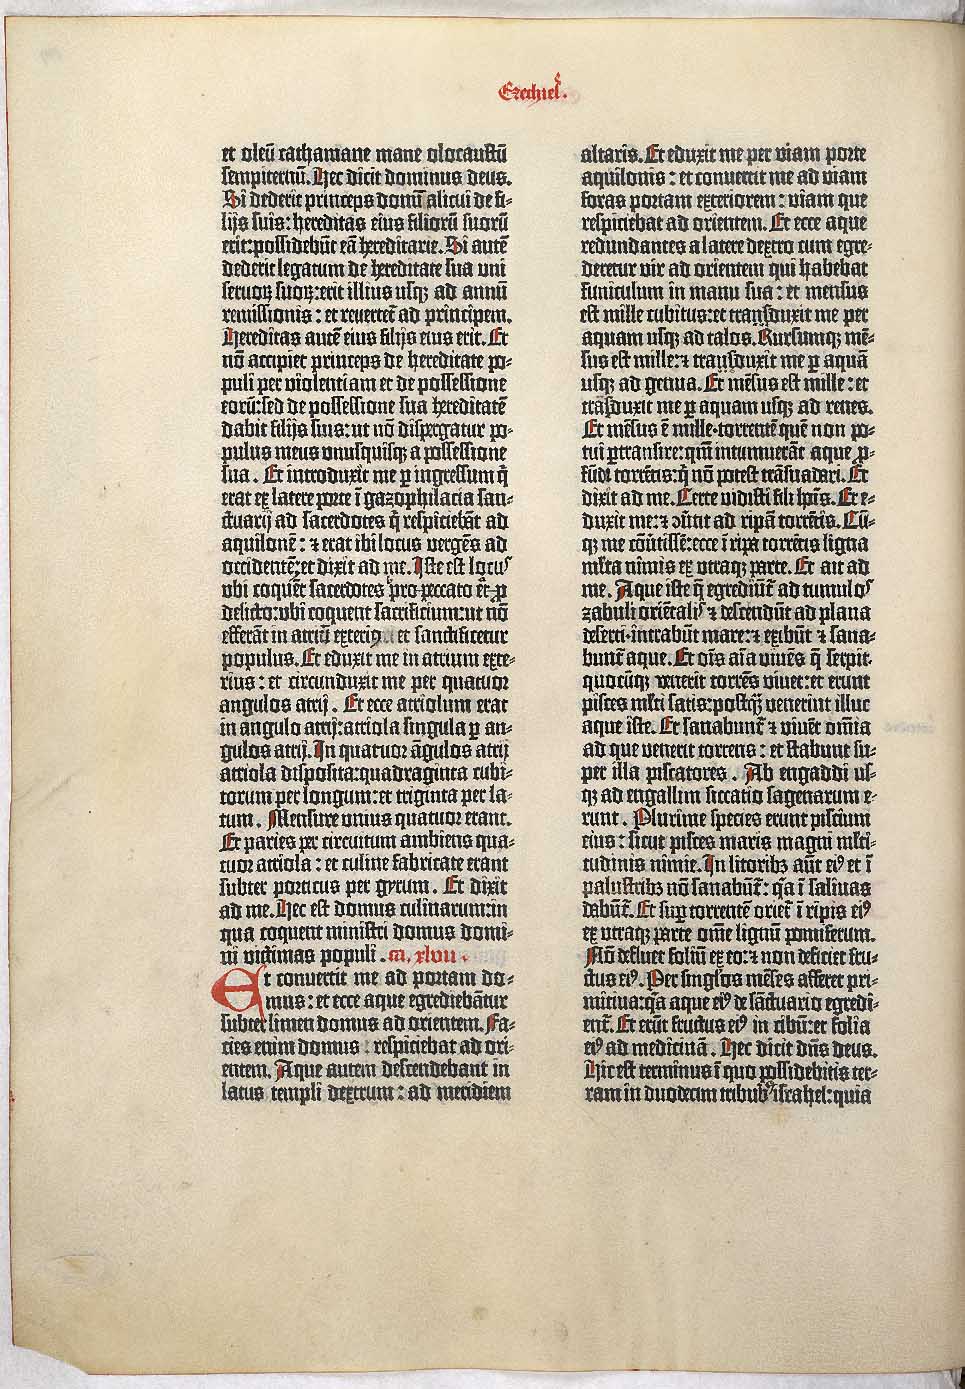 Ezechiel.
et oleū cathamane mane olocaustū
sempiternū. Hec dicit dominus deus.
Si dederit princeps domū alicui de fi-
lijs suis: hereditas eius filiorū suorū
erit: possidebūt eā hereditarie. Si autē
dederit legatum de hereditate sua uni
seruoꝝ suoꝝ: erit illius usqꝫ ad annū
remissionis: et reuertet̄ ad principem.
Hereditas autē eius filijs eius erit. Et
nō accipiet princeps de hereditate po-
puli per violentiam et de possessione
eorū: sed de possessione sua hereditatē
dabit filijs suis: ut nō dispergatur po-
pulus meus unusquisqꝫ a possessione
sua. Et introduxit me ꝑ ingressum q̄
erat ex latere porte ī gazophilacia san-
ctuarij ad sacerdotes q̄ respiciebāt ad
aquilonē: ⁊ erat ibi locus vergēs ad
occidentē: et dixit ad me. Iste est locꝰ
vbi coquēt sacerdotes pro peccato et ꝓ
delicto: vbi coquent sacrificium: ut nō
efferāt in atriū exteriꝰ et sanctificetur
populus. Et eduxit me in atrium exte-
rius: et circunduxit me per quatuor
angulos atrij. Et ecce atriolum erat
in angulo atrij: atriola singula ꝑ an-
gulos atrij. In quatuor āgulos atrij
atriola disposita: quadraginta cubi-
torum per longum: et triginta per la-
tum. Mensure unius quatuor erant.
Et paries per circuitum ambiens qua-
tuor atriola: et culine fabricate erant
subter porticus per gyrum. Et dixit
ad me. Hec est domus culinarum: in
qua coquent ministri domus domi-
ni victimas populi. ca. xlvii.
Et conuertit me ad portam do-
mus: et ecce aque egrediebātur
subter limen domus ad orientem. Fa-
cies enim domus: respiciebat ad ori-
entem. Aque autem descendebant in
latus templi dextrum: ad meridiem
altaris. Et eduxit me per viam porte
aquilonis: et conuertit me ad viam
foras portam exteriorem: viam que
respiciebat ad orientem. Et ecce aque
redundantes a latere dextro cum egre-
deretur vir ad orientem qui habebat
funiculum in manu sua: et mensus
est mille cubitus: et transduxit me per
aquam usqꝫ ad talos. Rursumqꝫ mē-
sus est mille: ⁊ transduxit me ꝑ aquā
usqꝫ ad genua. Et mēsus est mille: et
trāsduxit me ꝑ aquam usqꝫ ad renes.
Et mēsus ē mille. torrentē quē non po-
tui ꝑtransire: qm̄ intumuerāt aque ꝓ-
fūdi torrētis: q̄ nō potest trāsuadari. Et
dixit ad me. Certe vidisti fili hoīs. Et e-
duxit me: ⁊ ꝯūtit ad ripā torrētis. Cū-
qꝫ me cōūtissē: ecce ī ripa torrētis ligna
ml̄ta nimis ex utraqꝫ parte. Et ait ad
me. Aque iste q̄ egrediūt̄ ad tumulos
zabuli oriētalis ⁊ descendūt ad plana
deserti. intrabūt mare: ⁊ exibūt ⁊ sana-
bunt̄ aque. Et oīs aīa viuēs q̄ serpit.
quocūqꝫ venerit torrēs viuet: et erunt
pisces ml̄ti satis: postqꝫ̄ venerint illuc
aque iste. Et sanabunt̄ ⁊ viuēt om̄ia
ad que venerit torrens: et stabunt su-
per illa piscatores. Ab engaddi us-
qꝫ ad engallim siccatio sagenarum e-
runt. Plurime species erunt piscium
eius: sicut pisces maris magni ml̄ti-
tudinis nimie. In litoribꝫ aūt eiꝰ et ī
palustribꝫ nō sanabūt̄: q̄a ī salinas
dabūt̄. Et suꝑ torrentē oriet̄ ī ripis eiꝰ
ex utraqꝫ parte om̄e lignū pomiferum.
Nō defluet foliū ex eo: ⁊ non deficiet fru-
ctus eiꝰ. Per singlos mēses afferet pri-
mitiua: q̄a aque eiꝰ de sāctuario egredi-
ent̄. Et erūt fructus eiꝰ in cibū: et folia
eiꝰ ad medicinā. Hec dicit dn̄s deus.
Hic est terminus ī quo possidebitis ter-
ram in duodecim tribubꝰ israhel: quia